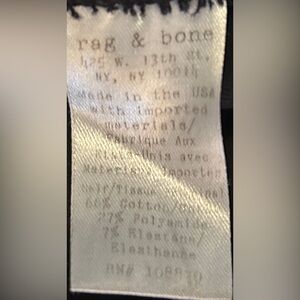 rag & bone
425 W. 13th St.
NY, NY 10014
Made in the USA
with imported
materials/
Fabrique Aux
Etats-Unis avec
Materiels Importes
66% Cotton/
27% Polyamide
7% Elastane/
Elasthanne
RN# 108820